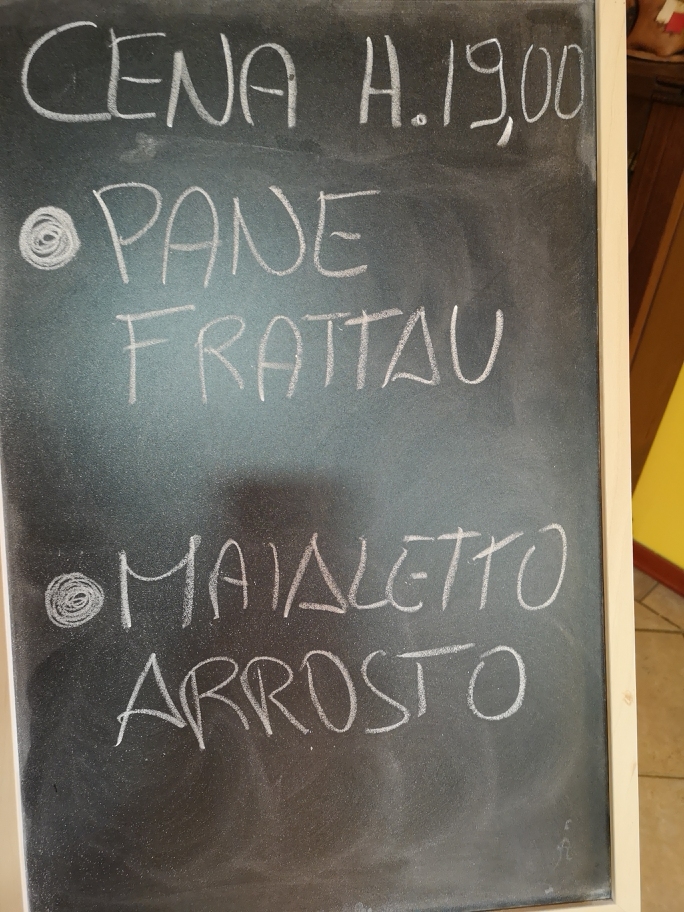 CENA H.19,00
PANE
FRATTAU
MAIALETTO
ARROSTO